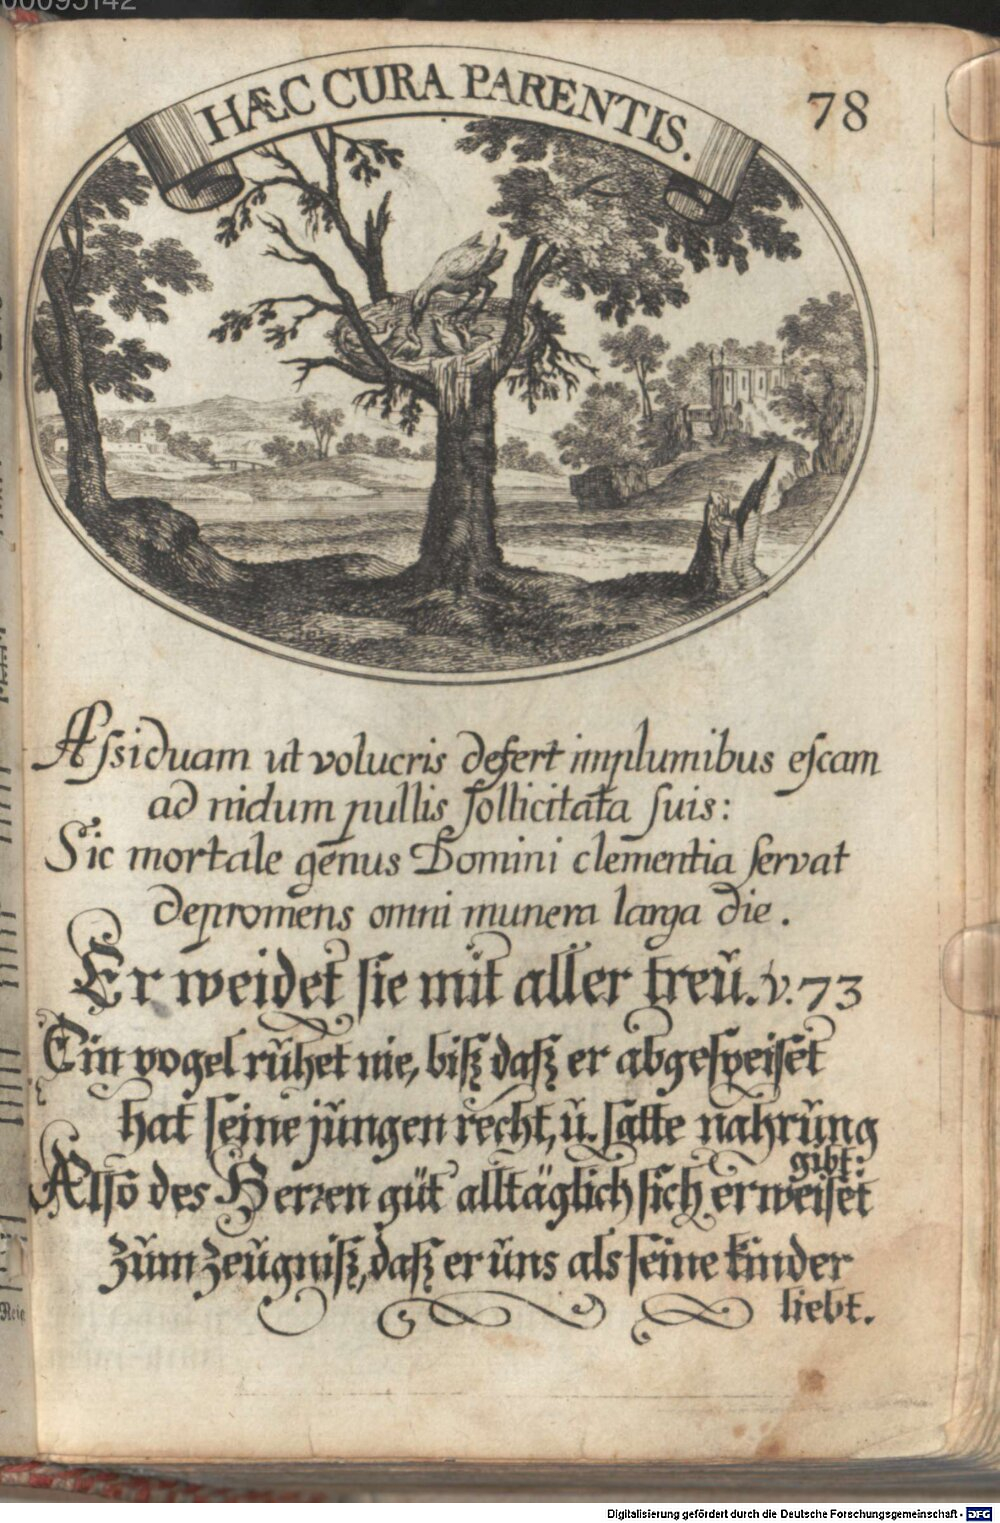 00095142
HÆC CURA PARENTIS.
78
Aſsiduam ut volucris defert implumibus eſcam
ad nidum pullis ſollicitata ſuis:
Sic mortale genus Domini clementia ſervat
depromens omni munera larga die.
Er weidet ſie mit aller treŭ. v. 73
Ein vogel rŭhet nie, biſz daſz er abgeſpeiſet
hat ſeine jŭngen recht, ŭ. ſatte nahrŭng
gibt:
Alſo des Herren güt alltäglich ſich erweiſet
zŭm zeŭgniſz, daſz er ŭns als ſeine kinder
liebt.
Digitalisierung gefördert durch die Deutsche Forschungsgemeinschaft - DFG